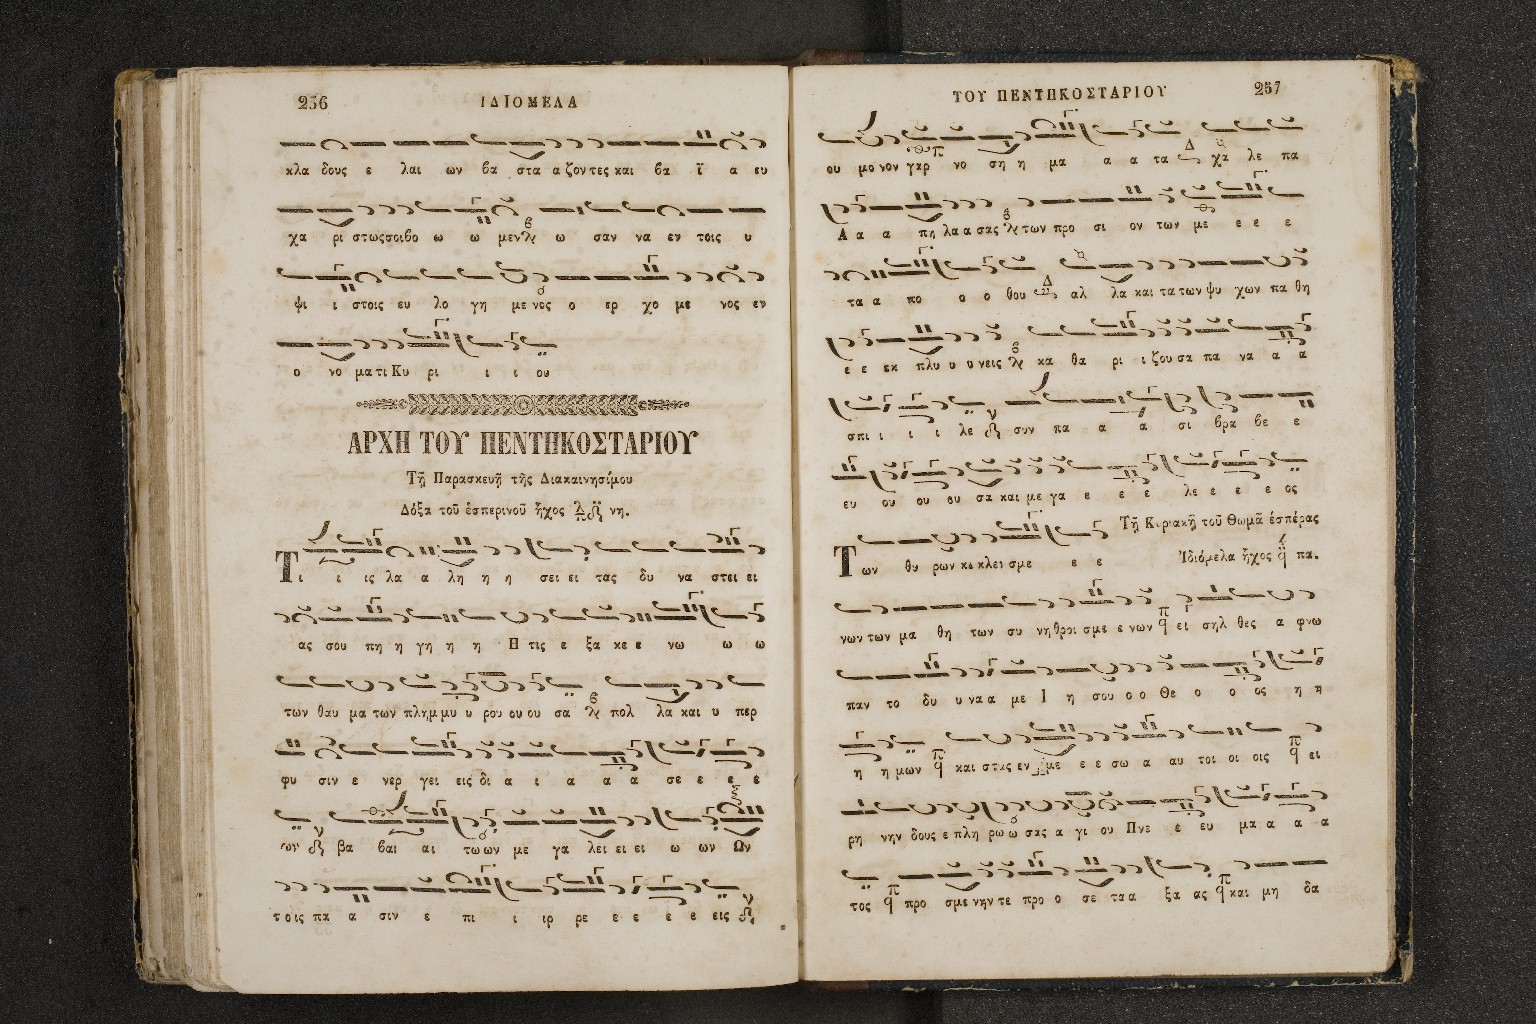 256 ΙΔΙΟΜΕΛΑ
κλα δους ε λαι ων βα στα α ζον τες και βα ϊ α ευ
χα ρι στως σοι βο ω ω μεν ω σαν να εν τοις υ
ψι ι στοις ευ λο γη με νος ο ερ χο με νος εν
ο νο μα τι Κυ ρι ι ι ου
ΑΡΧΗ ΤΟΥ ΠΕΝΤΗΚΟΣΤΑΡΙΟΥ
Τῇ Παρασκευῇ τῆς Διακαινησίμου
Δόξα τοῦ ἑσπερινοῦ ἦχος νη.
Τι ι ις λα α λη η η σει ει τας δυ να στει ει
ας σου πη η γη η η Η τις ε ξα κε ε νω ω ω
των θαυ μα των πλημ μυ υ ρου ου ου σα πολ λα και υ περ
φυ σιν ε νερ γει εις δι α ι α α α σε ε ε ε ε
ων βα βαι αι τω ων με γα λει ει ει ω ων Ων
τοις πα α σιν ε πι ι ιρ ρε ε ε ε ε ε εις
ΤΟΥ ΠΕΝΤΗΚΟΣΤΑΡΙΟΥ 257
ου μο νον γαρ νο ση η μα α α τα χα λε πα
Α α α πη λα α σας των προ σι ον των με ε ε ε
τα α πο ο ο θου αλ λα και τα των ψυ χων πα θη
ε ε εκ πλυ υ υ νεις κα θα ρι ι ζου σα πα να α α
σπι ι ι ι λε συν πα α α σι βρα βε ε
ευ ου ου ου σα και με γα ε ε ε λε ε ε ε ος
Τῇ Κυριακῇ τοῦ Θωμᾶ ἑσπέρας
Των θυ ρων κε κλει σμε ε ε Ἰδιόμελα ἦχος πα.
νων των μα θη των συ νη θροι σμε ε νων ει σηλ θες α φνω
παν το δυ υ να α με Ι η σου ο ο Θε ο ο ος η η
η η μων και στας εν με ε ε σω α αυ τοι οι οις ει
ρη νην δους ε πλη ρω ω σας α γι ου Πνε ε ευ μα α α α
τος προ σμε νην τε προ ο σε τα α ξα ας και μη δα